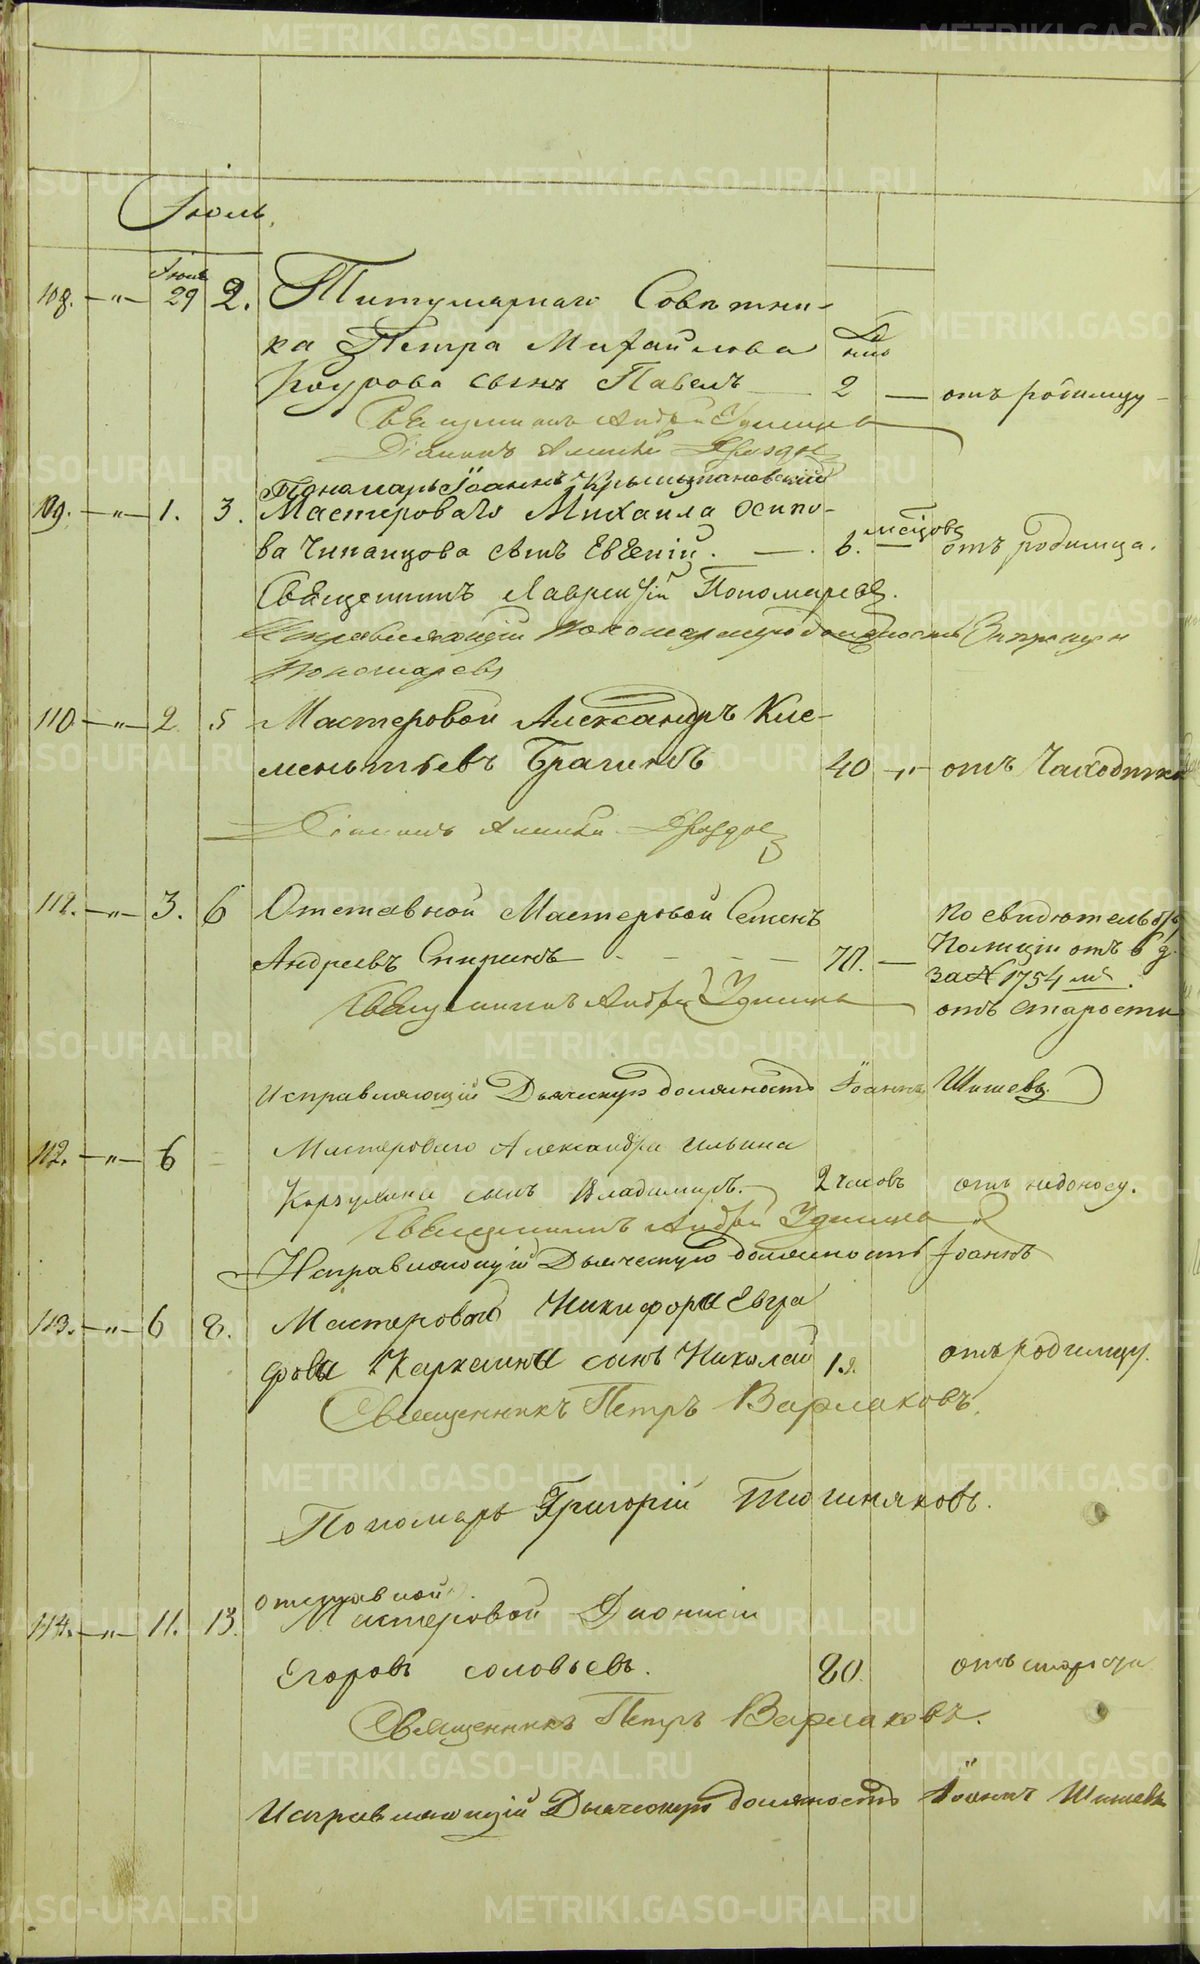 Іюль.
108. — " — Іюня 29 2. Титулярнаго Совѣтни-
ка Петра Михайлова дня
Коурова сынъ Павелъ 2 — отъ родимцу
Священникъ Андрей Удинцовъ
Діаконъ
Пономарь Іоаннъ
109. — " — 1. 3. Мастероваго Михаила Осипо-
ва Чипанцова сынъ Евгеній. — 6. месяцовъ отъ родимца.
Священникъ Лаврентій Пономаревъ.
Исправляющій должность
Пономаревъ
110 — " — 2. 5 Мастеровой Александръ Кле-
ментьевъ Брагинъ 40 — " — отъ Чахотки
Діаконъ
112. — " — 3. 6 Отставной Мастеровой Семенъ
Андреевъ Спиринъ — 70. —
по свидѣтельству
Полиціи отъ 6 д.
за № 1754 мъ.
отъ старости
Священникъ Андрей Удинцовъ
Исправляющій Дьяческую должность Іоаннъ Шишевъ
112. — " — 6 Мастероваго Александра Ильина
сынъ Владимиръ. 2 часовъ отъ недоносу.
Священникъ Андрей Удинцовъ
Исправляющій Дьяческую должность Іоаннъ
113. — " — 6 8. Мастероваго Никифора Евгра
фова сынъ Николай 1. отъ родимцу.
Священникъ Петръ Варлаковъ.
Пономарь Григорій Тюшняковъ.
отставной
114. — " — 11. 13. Мастеровой Дионисій
Егоровъ Соловьевъ. 80. отъ старости
Священникъ Петръ Варлаковъ.
Исправляющій Дьяческую должность Іоаннъ Шишевъ
METRIKI.GASO-URAL.RU